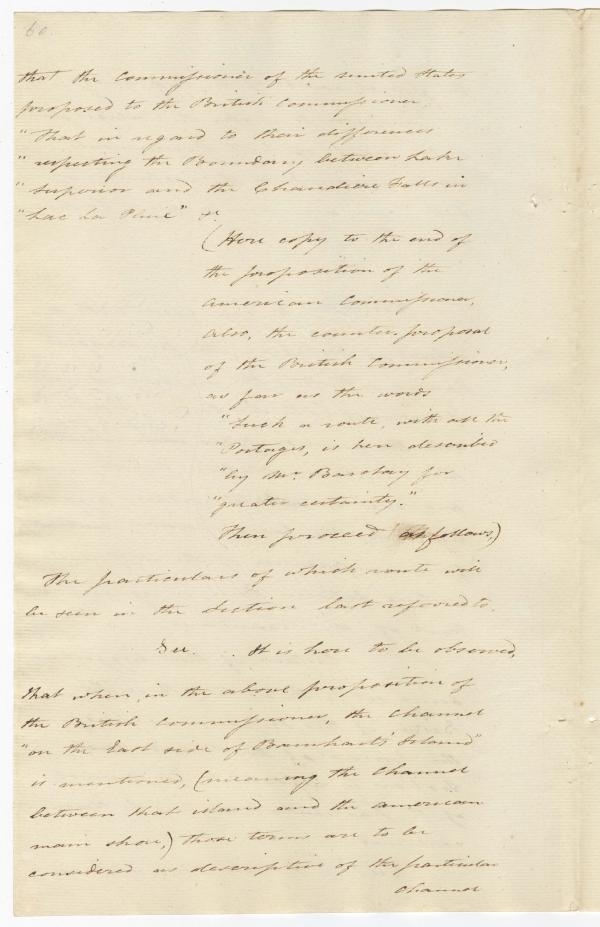 60.
that the Commissioner of the united States
proposed to the British Commissioner.
"That in regard to their differences
"respecting the Boundary between Lake
"Superior and the Chaudiere Falls in
"Lac La Pluie" &c.
(Here copy to the end of
the proposition of the
American Commissioner,
also, the counter proposal
of the British Commissioner,
as far as the words
"Such a route, with all the
"Portages, is here described
"by Mr. Barclay for
"greater certainty."
Then proceed as follows,)
The particulars of which route will
be seen in the Section last referred to.
Sec. . It is here to be observed,
that when, in the above proposition of
the British Commissioner, the Channel
"on the East side of Barnhart's Island"
is mentioned, (meaning the Channel
between that island and the American
main shore,) those terms are to be
considered as descriptive of the particular
Channel